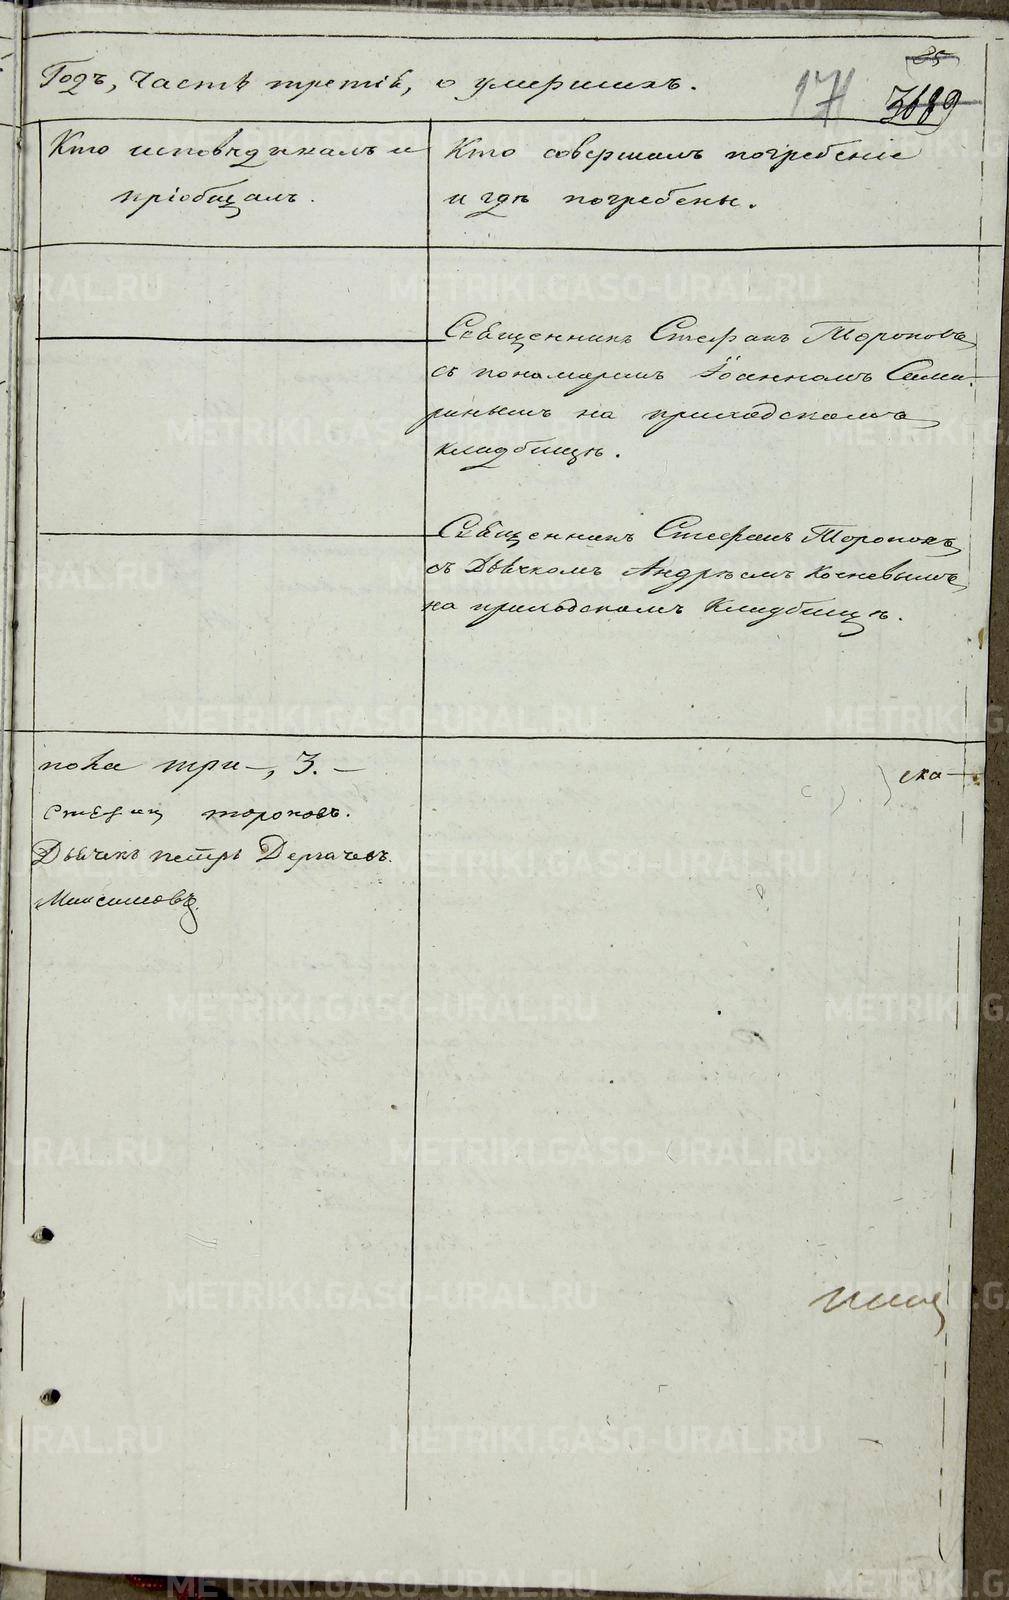 25
Годъ, Часть третія, о умершихъ.
171 3689
Кто исповѣдикалъ и
пріобщалъ.
Кто совершалъ погребеніе
и гдѣ погребены.
Священникъ Стефанъ Тороповъ
съ пономаремъ Іоанномъ Сама-
ринымъ на приходскомъ
кладбищѣ.
Священникъ Стефанъ Тороповъ
съ Дьячкомъ Андрѣемъ Кочневымъ
на приходскомъ Кладбищѣ.
пола три, 3.
Стефанъ тороповъ.
Дьячекъ петръ Дергачевъ.
Максимовъ
ска
METRIKI.GASO-URAL.RU